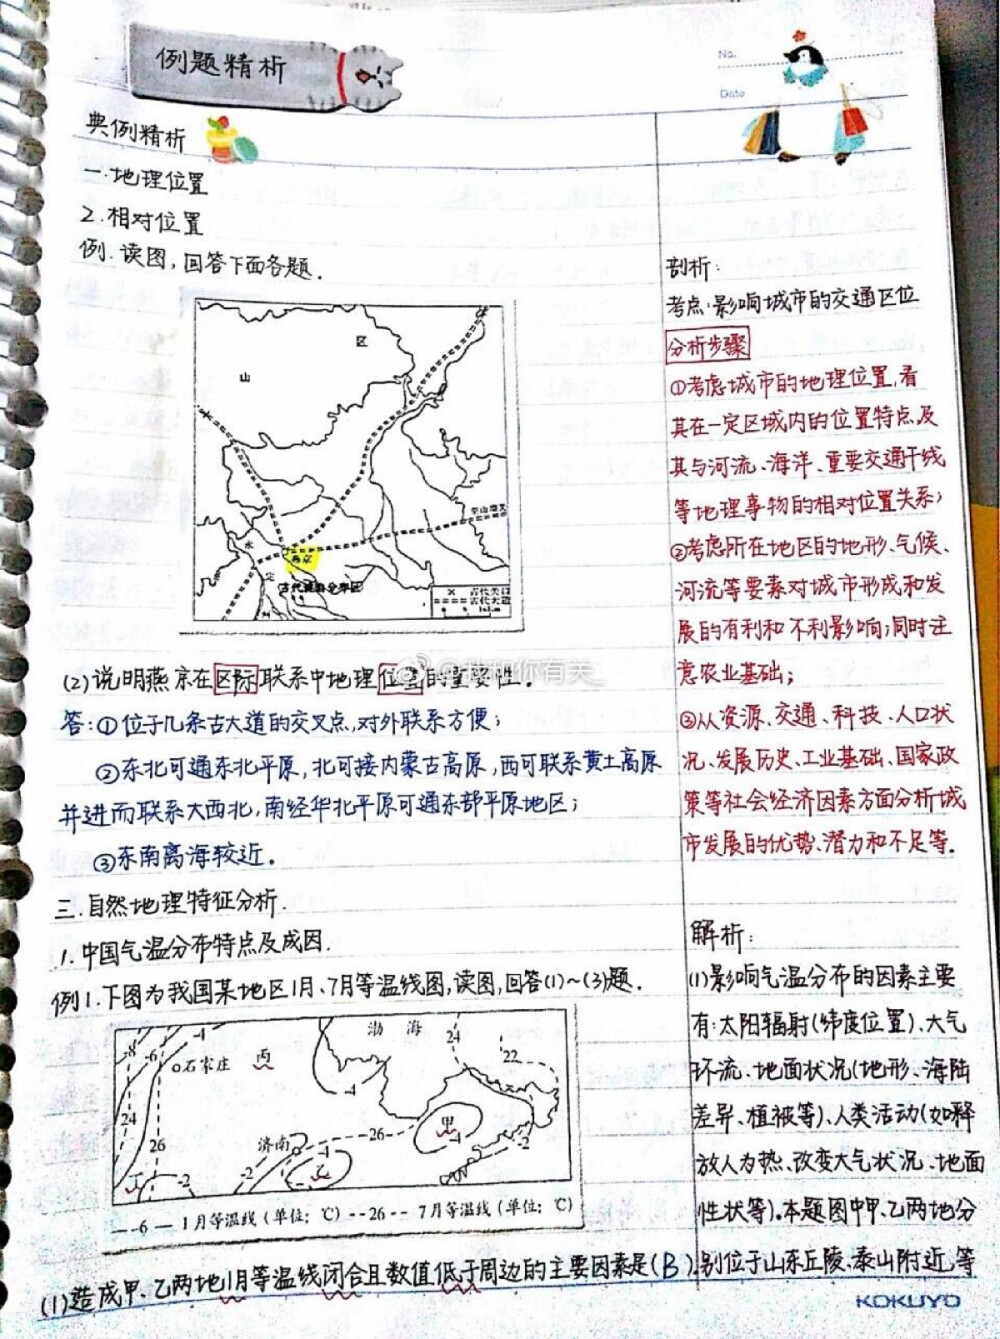 例题精析
No.
Date
典例精析
一.地理位置
2.相对位置
例.读图,回答下面各题.
区
山
至山海关
永
燕京
定
河
古代关口
古代大道
(2)说明燕京在区际联系中地理位置的重要性。
@我和你有关
答:①位于几条古大道的交叉点,对外联系方便;
②东北可通东北平原,北可接内蒙古高原,西可联系黄土高原
并进而联系大西北,南经华北平原可通东部平原地区;
③东南离海较近。
三.自然地理特征分析.
1.中国气温分布特点及成因.
例1.下图为我国某地区1月、7月等温线图,读图,回答(1)~(3)题.
-8 -6 -4 石家庄 丙 渤海 24 22
-4
24 26 济南 -4 -26- 甲 -4 -2
丁 -2 -2 乙
—-6— 1月等温线(单位:℃) --26-- 7月等温线(单位:℃)
(1)造成甲、乙两地1月等温线闭合且数值低于周边的主要因素是(B)
剖析:
考点:影响城市的交通区位
分析步骤
①考虑城市的地理位置,看
其在一定区域内的位置特点及
其与河流、海洋、重要交通干线
等地理事物的相对位置关系;
②考虑所在地区的地形、气候、
河流等要素对城市形成和发
展的有利和不利影响;同时注
意农业基础;
③从资源、交通、科技、人口状
况、发展历史、工业基础、国家政
策等社会经济因素方面分析城
市发展的优势、潜力和不足等。
解析:
(1)影响气温分布的因素主要
有:太阳辐射(纬度位置)、大气
环流、地面状况(地形、海陆
差异、植被等)、人类活动(如释
放人为热、改变大气状况、地面
性状等)。本题图中甲、乙两地分
别位于山东丘陵、泰山附近,等
KOKUYO